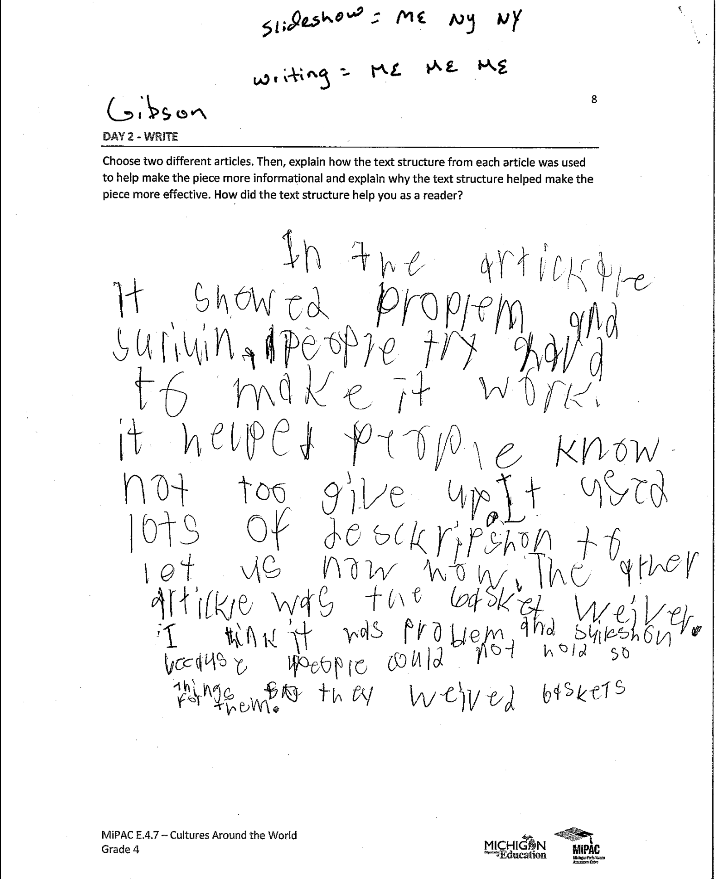 slideshow = ME NY NY
writing = ME ME ME
Gibson
8
DAY 2 - WRITE
Choose two different articles. Then, explain how the text structure from each article was used
to help make the piece more informational and explain why the text structure helped make the
piece more effective. How did the text structure help you as a reader?
In the
It showed proplem and
people try hard
to make it work.
it helped people know
not too give up. It used
lots of desckripshon to
let us now how. The other
artickle was the basket weiver.
I think it was problem and
because people could not hold
things so they weived baskets
for them.
MiPAC E.4.7 – Cultures Around the World
Grade 4
MICHIGAN
Education
MiPAC